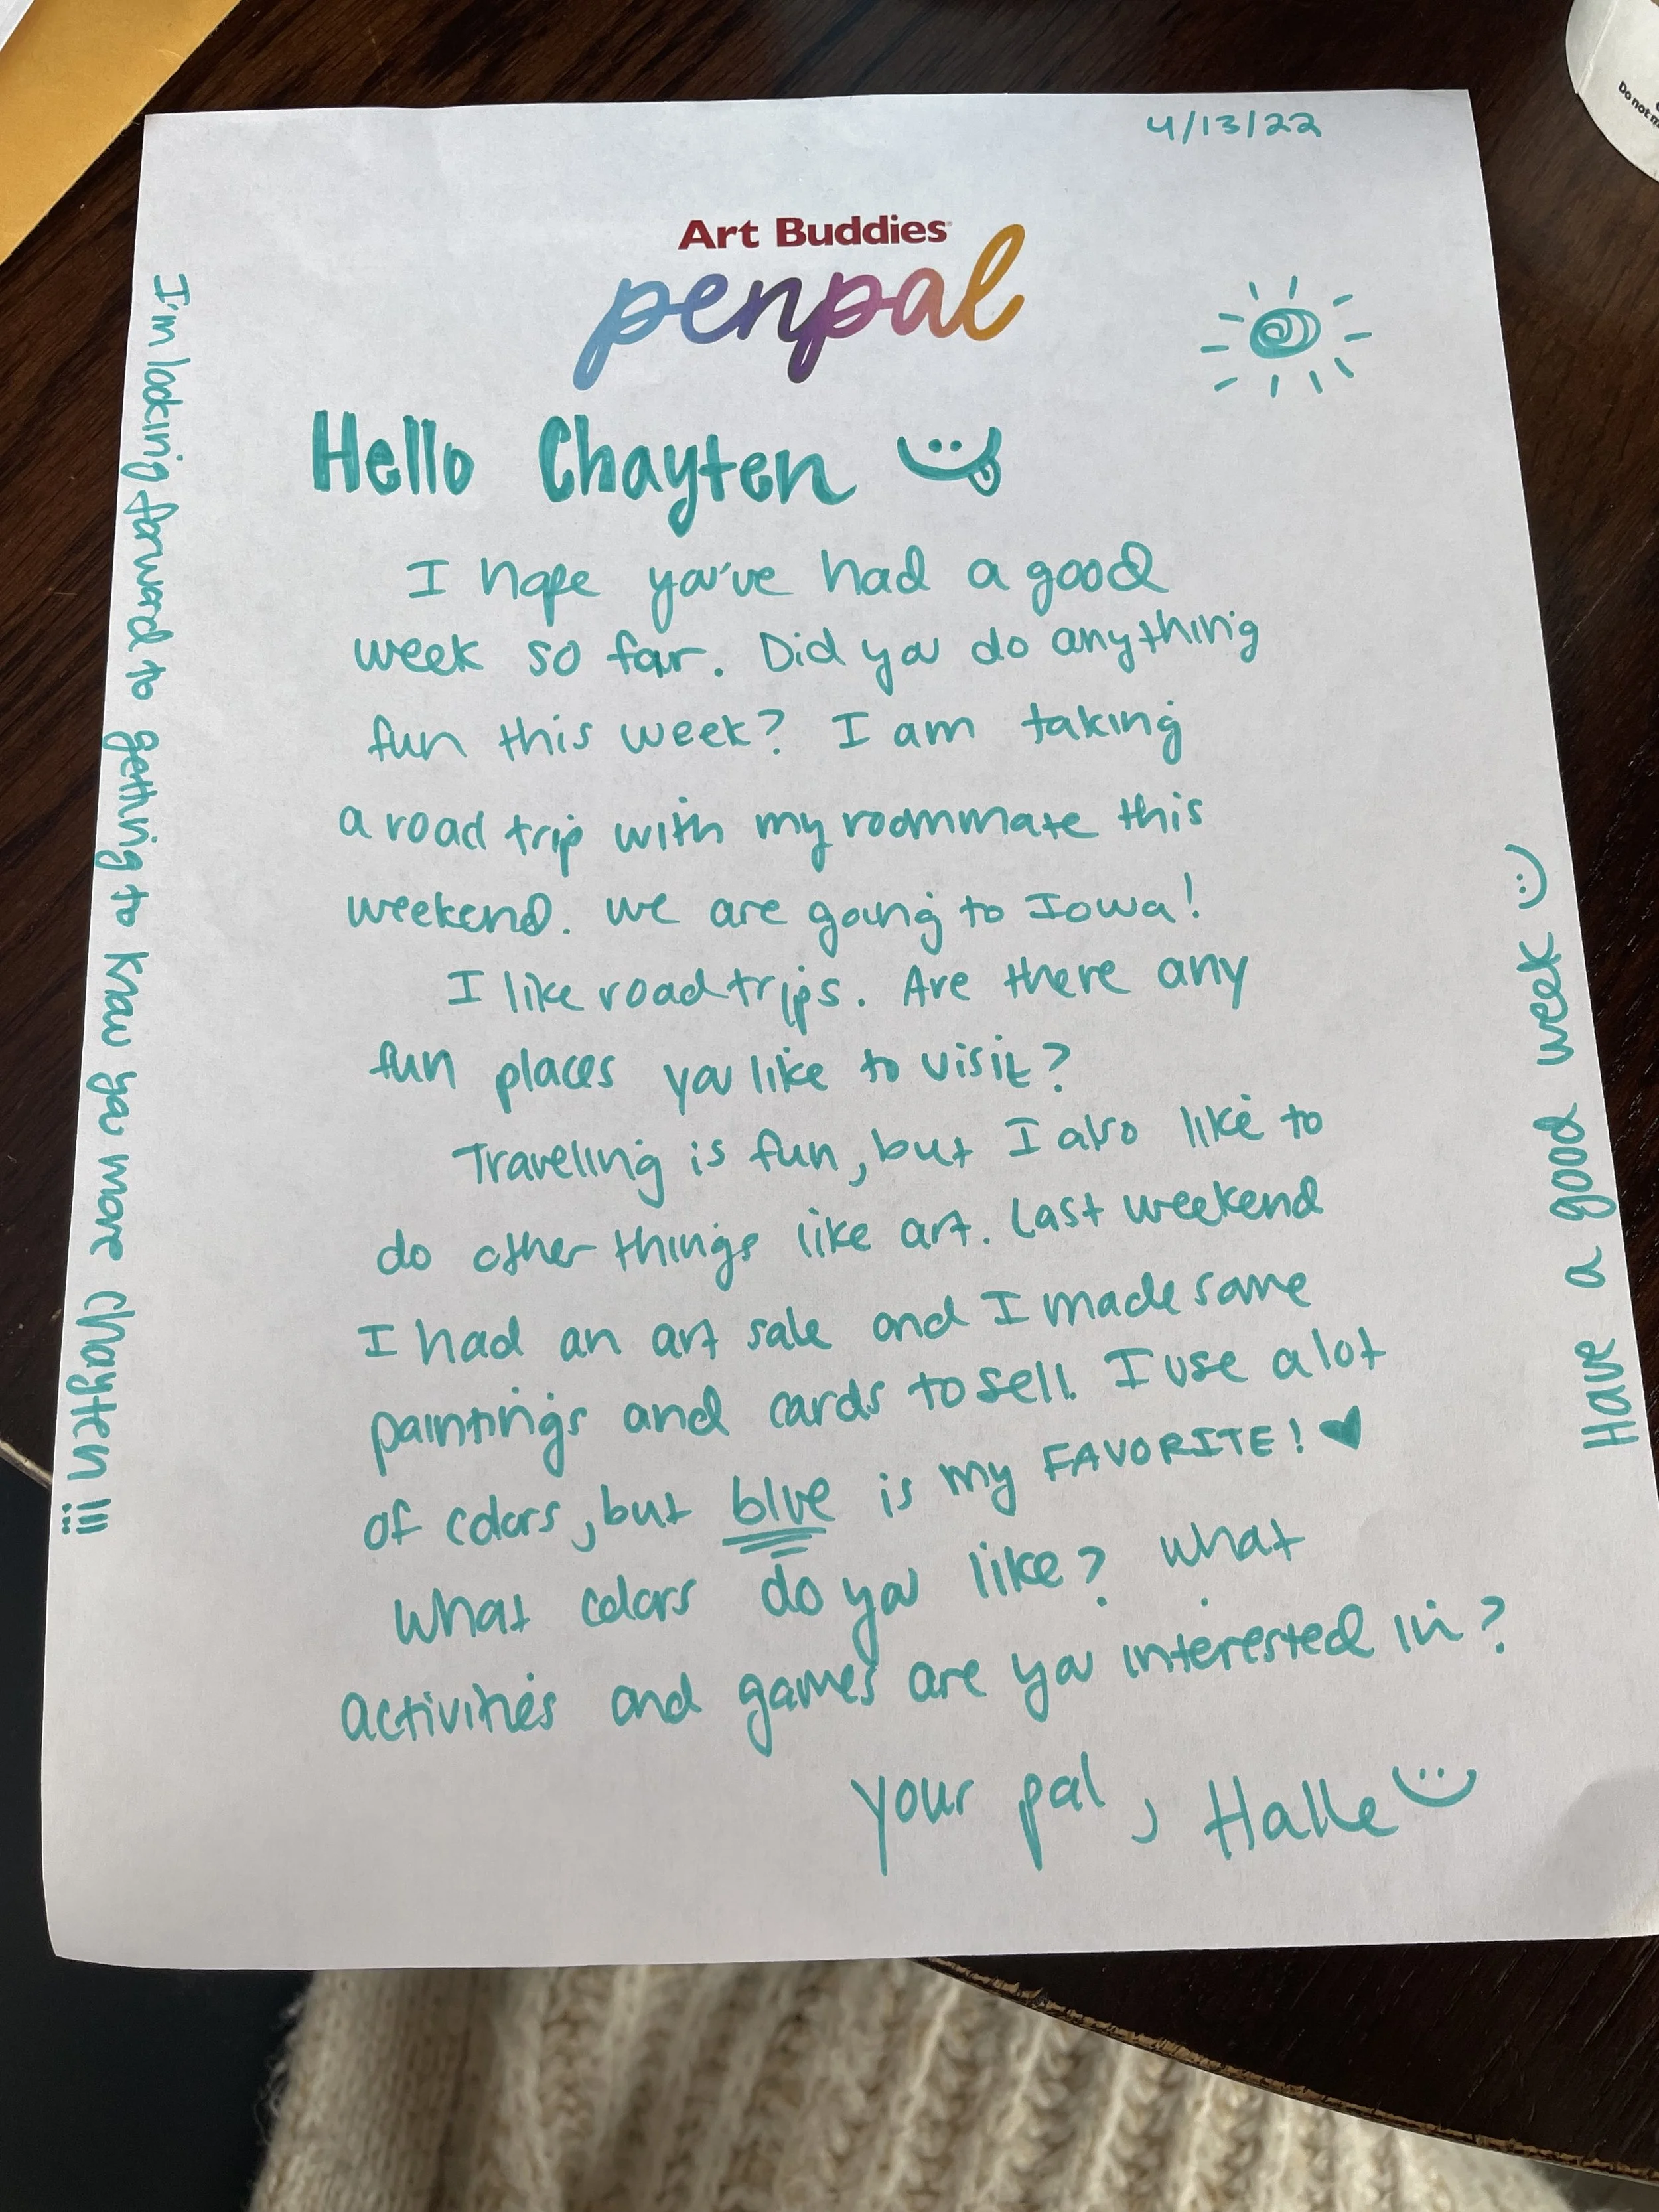 4/13/22
Art Buddies
penpal
Hello Chayten
I hope you've had a good
week so far. Did you do anything
fun this week? I am taking
a road trip with my roommate this
weekend. we are going to Iowa!
I like road trips. Are there any
fun places you like to visit?
Traveling is fun, but I also like to
do other things like art. Last weekend
I had an art sale and I made some
paintings and cards to sell. I use a lot
of colors, but blue is my FAVORITE!
What colors do you like? What
activities and games are you interested in?
your pal, Halle
I'm looking forward to getting to know you more Chayten!!!
Have a good week
Do not